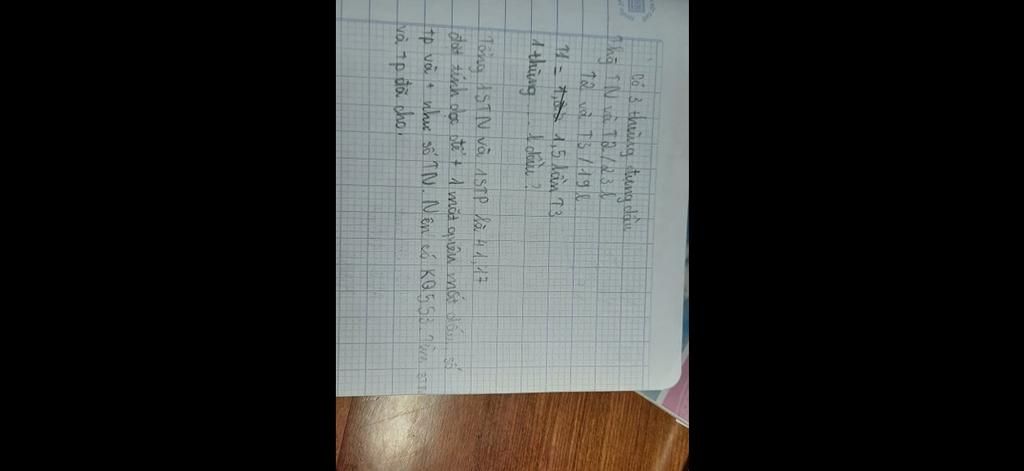 Có 3 thùng đựng dầu
thg TN và T2 / 23 l
T2 và T3 / 19 l
T1 = 1,5 lần T3
1 thùng ... l dầu?
Tổng 1 STN và 1 STP là 41,17
đặt tính dọc để + 1 mặt quên mất dấu, số
TP và + như số TN. Nên có KQ 553. Tìm STN
và TP đã cho.